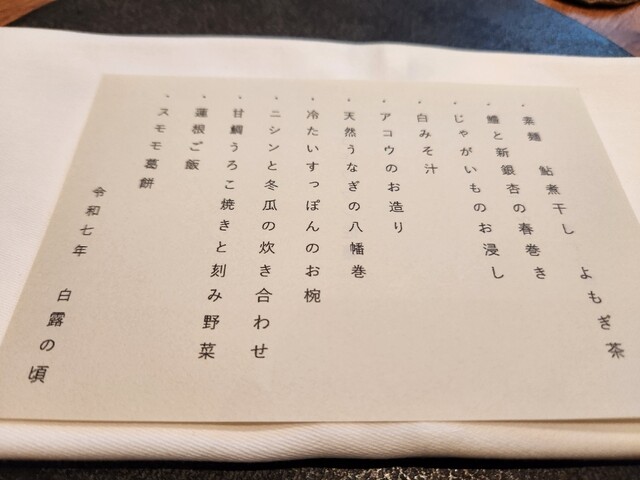 ・素麺 鮎煮干し よもぎ茶
・鱧と新銀杏の春巻き
・じゃがいものお浸し
・白みそ汁
・アコウのお造り
・天然うなぎの八幡巻
・冷たいすっぽんのお椀
・ニシンと冬瓜の炊き合わせ
・甘鯛うろこ焼きと刻み野菜
・蓮根ご飯
・スモモ葛餅
令和七年 白露の頃